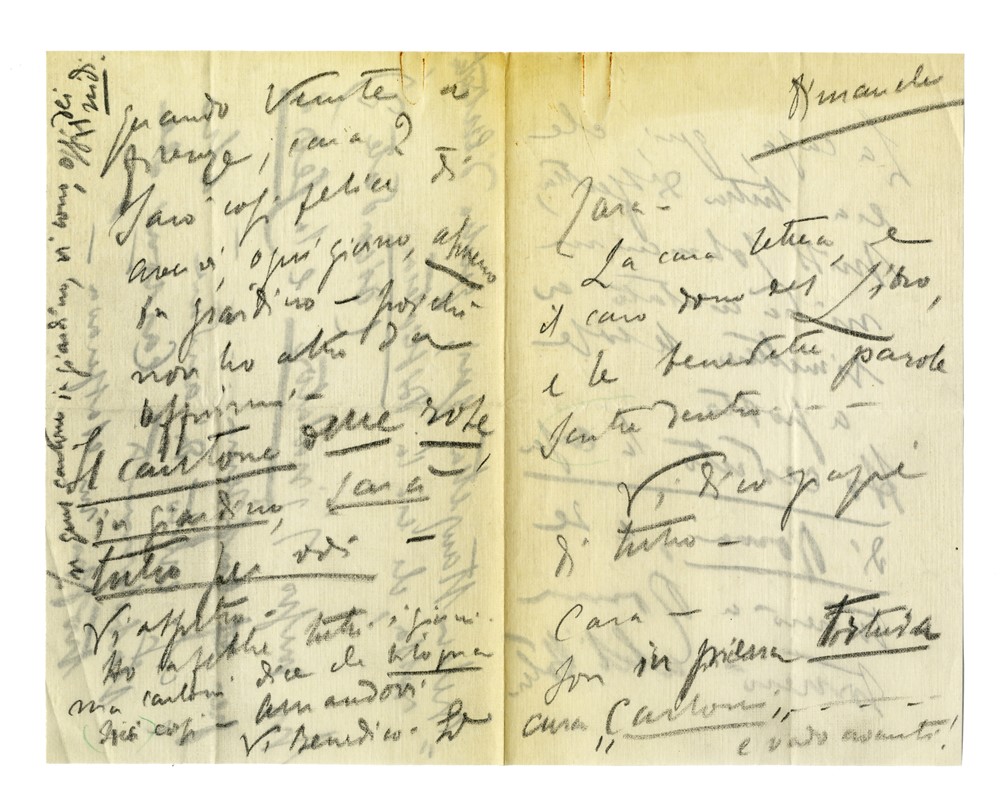 Cara -
La cara lettera, e
il caro dono del Libro,
e le benedette parole
scritte dentro -
Vi dico grazie
di tutto -
Cara -
son in piena tortura
cura, "Cartoni"
e vado avanti!
quando venite a
Firenze, cara?
Sarò così felice di
avervi, ogni giorno, almeno
in giardino - poiché
non ho altro da
offrirvi -
Il cartone delle rose,
in giardino, sarà
tutto per voi -
Vi aspetto -
Ho a letto tutti i giorni.
ma cartoni dice che bisogna
così - amandovi
Vi Benedico -
cartoni in giardino, vi sono,